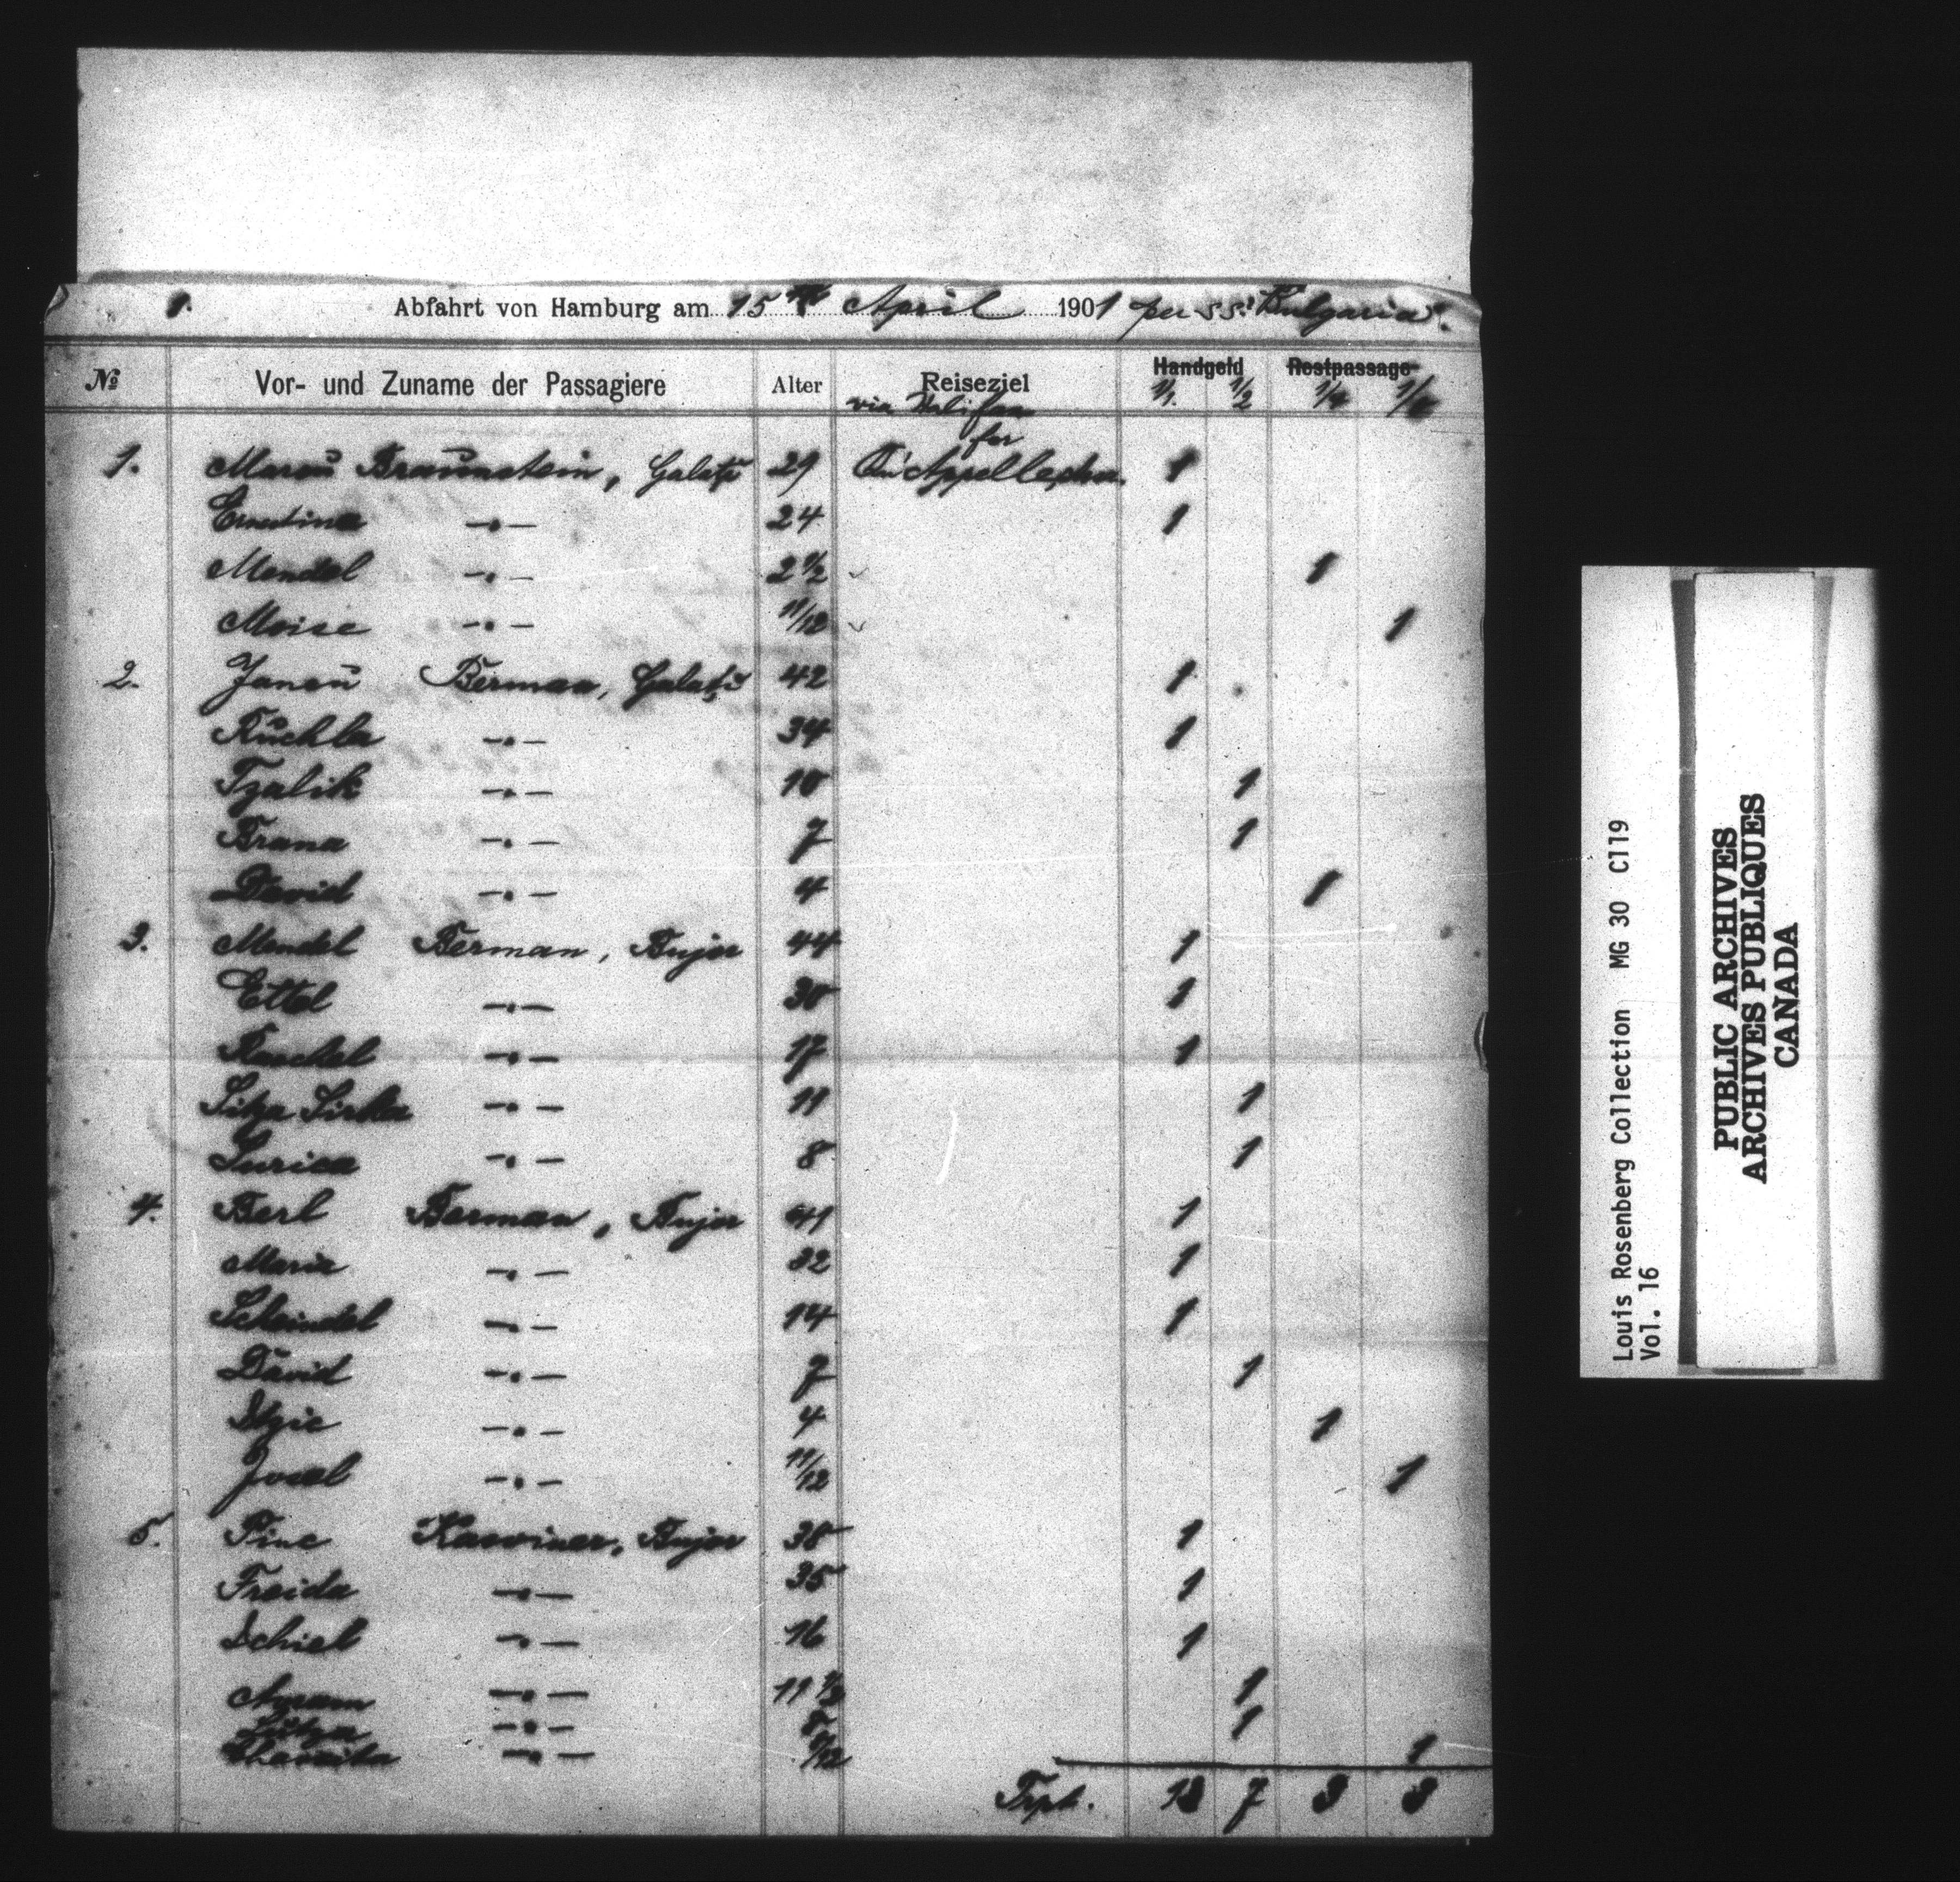 1. Abfahrt von Hamburg am 15th April 1901 per ss. "Bulgaria".
№ Vor- und Zuname der Passagiere Alter Reiseziel Handgeld Restpassage
via Halifax 1/1. 1/2 1/4 1/8
for
1. Marcu Braunstein, Galatz 29 Qu'Appelle 1
Ernstina -"- 24 1
Mendel -"- 2 1/2 1
Moise -"- 11/12 1
2. Jancu Berman, Galatz 42 1
Ruchla -"- 34 1
Tzalik -"- 10 1
Brana -"- 7 1
David -"- 4 1
3. Mendel Berman, Bujor 44 1
Ettel -"- 38 1
Raschel -"- 17 1
-"- 11 1
Surica -"- 8 1
4. Berl Berman, Bujor 41 1
Maria -"- 32 1
Scheindel -"- 14 1
David -"- 7 1
Itzic -"- 4 1
Josel -"- 11/12 1
5. Pinc Bujor 38 1
Freida -"- 35 1
Schiel -"- 16 1
-"- 11 1/2 1
-"- 8 1
-"- 1
Trpt. 13 7 3 3
Louis Rosenberg Collection MG 30 C119
Vol. 16
PUBLIC ARCHIVES
ARCHIVES PUBLIQUES
CANADA